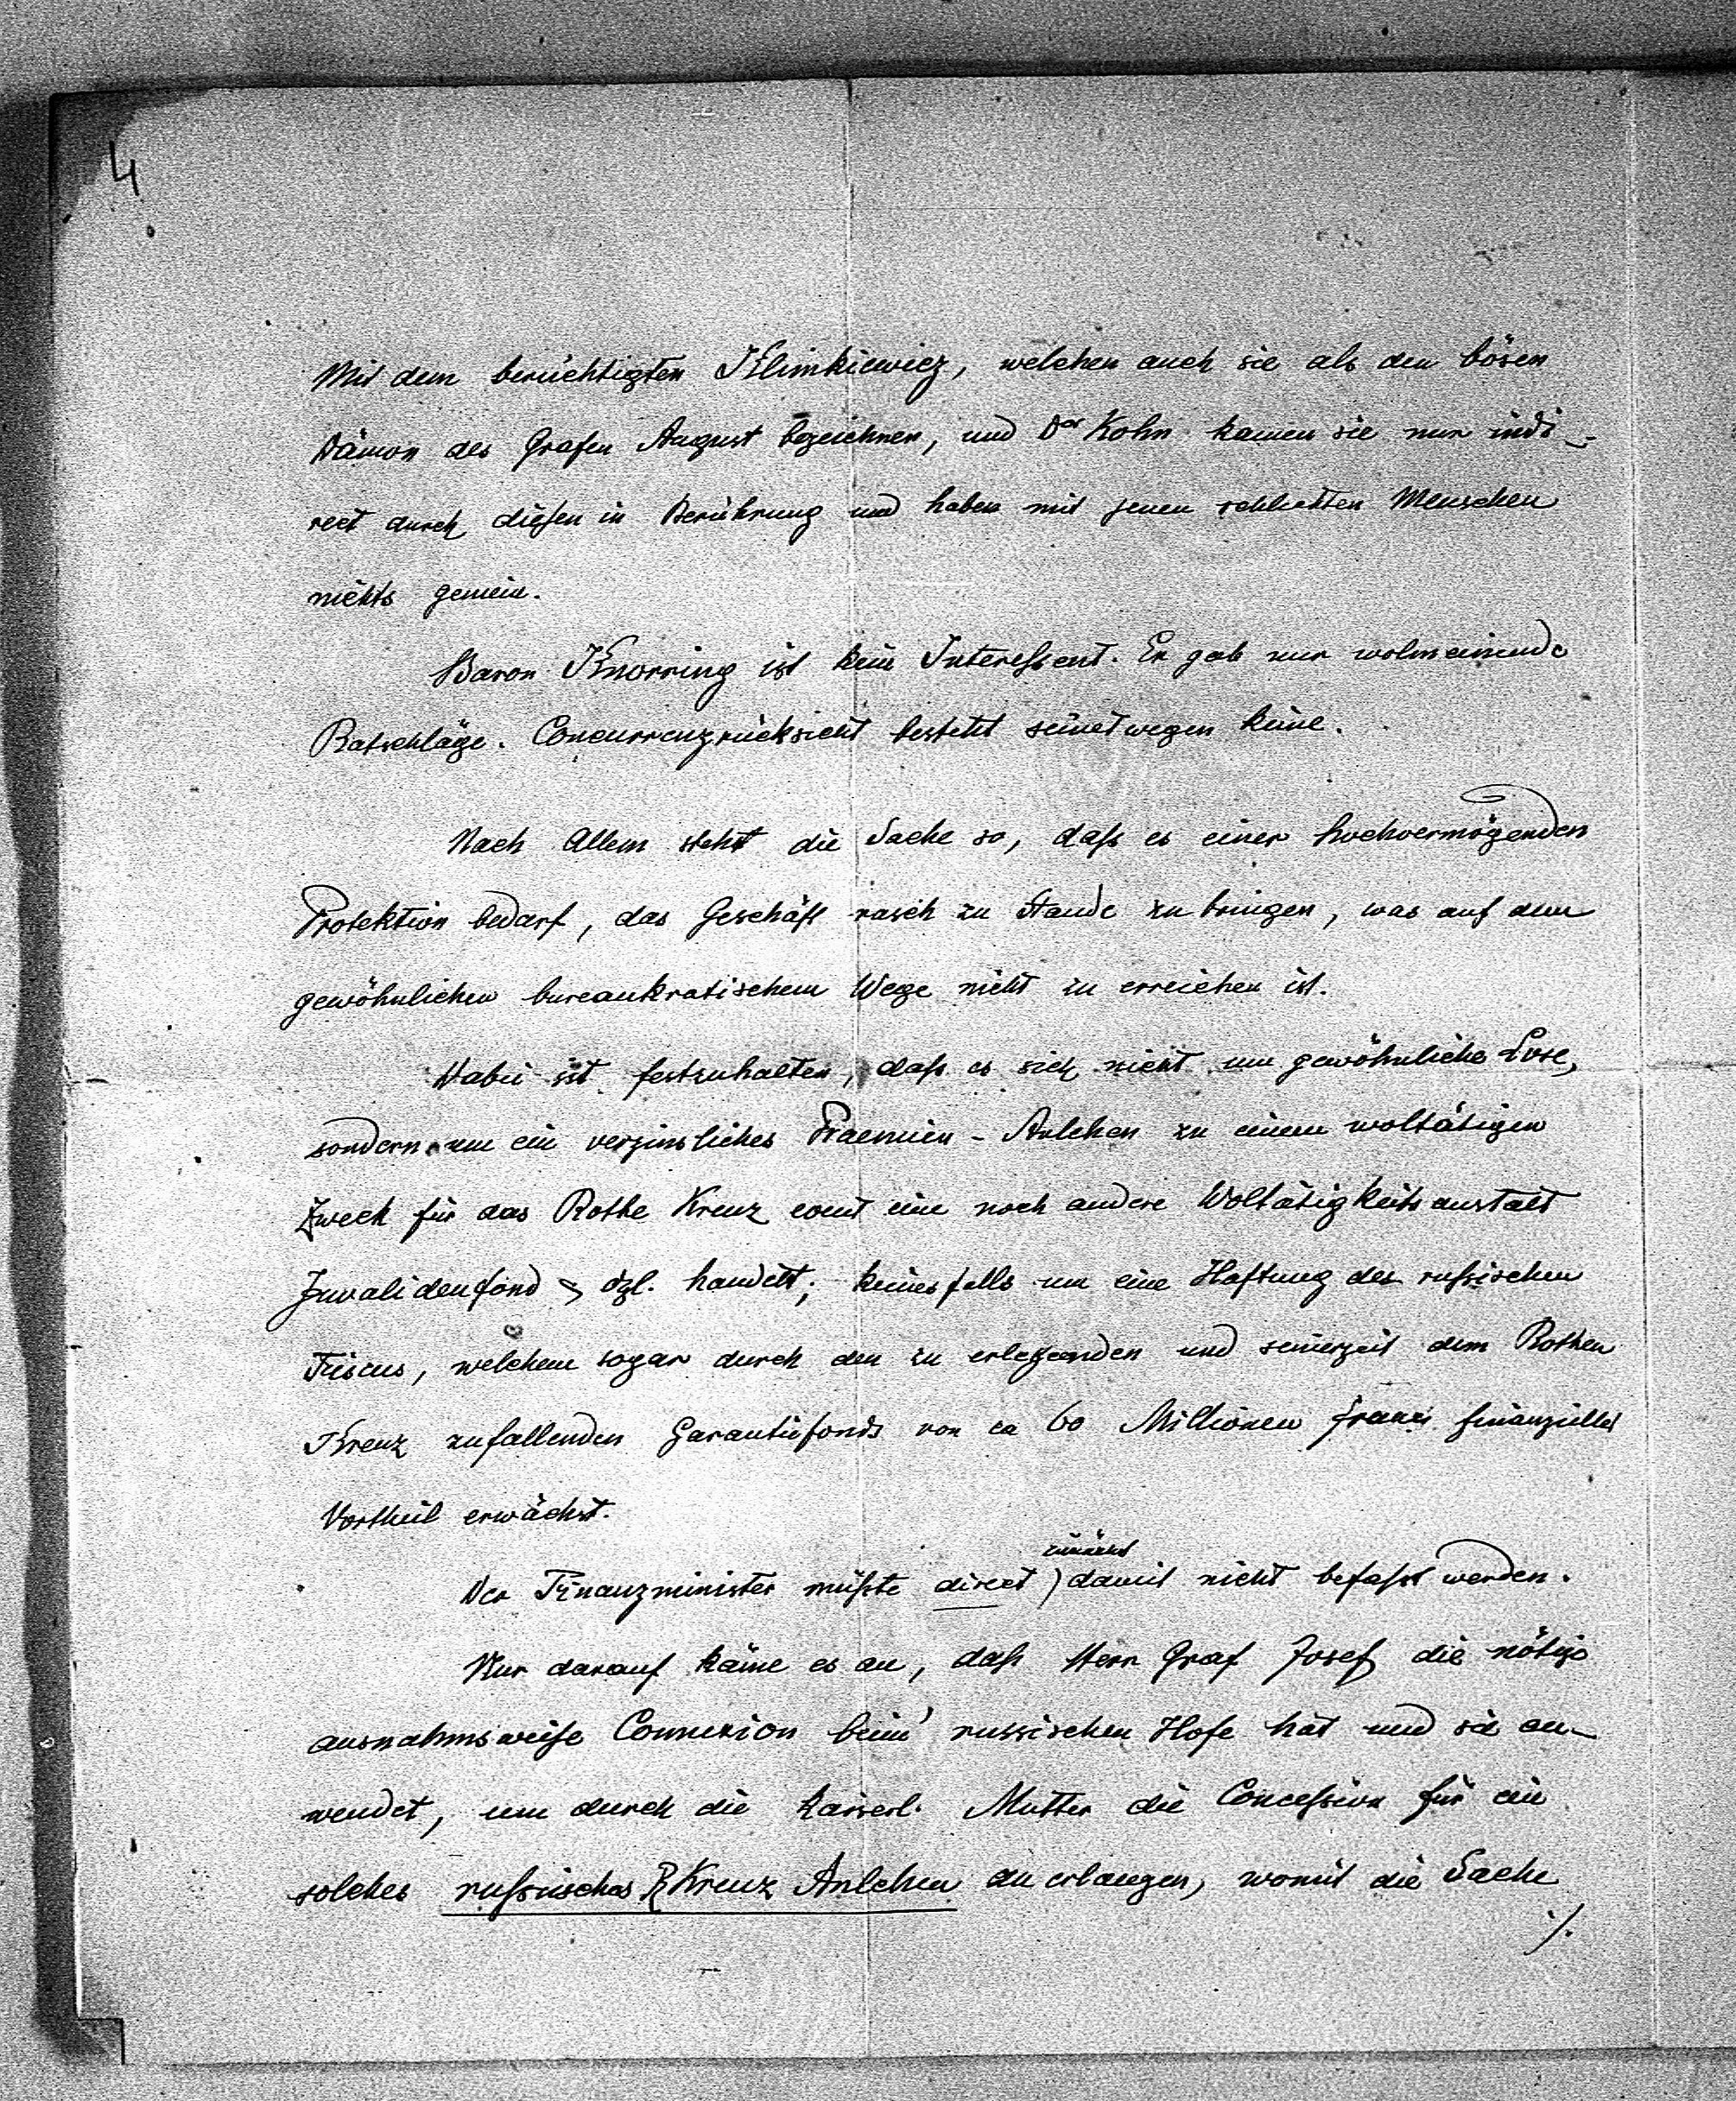 4
Mit dem berüchtigten Klimkiewicz, welchen auch sie als den bösen
Dämon des Grafen August bezeichnen, und Dor Kohn kamen sie nur indi-
rect durch diesen in Berührung und haben mit jenen schlechten Menschen
nichts gemein.
Baron Knorring ist kein Interessent. Er gab nur wolmeinende
Ratschläge. Concurrenzrücksicht besteht seinetwegen keine.
Nach Allem steht die Sache so, daß es einer hochvermögenden
Protektion bedarf, das Geschäft rasch zu Stande zu bringen, was auf dem
gewöhnlichen bureaukratischem Wege nicht zu erreichen ist.
Dabei ist festzuhalten, daß es sich nicht um gewöhnliche Lose,
sondern um ein verzinsliches Praemien-Anlehen zu einem woltätigen
Zweck für das Rothe Kreuz event eine noch andere Woltätigkeitsanstalt
Invalidenfond & dgl. handelt; keinesfalls um eine Haftung des russischen
Fiscus, welchem sogar durch den zu erlegenden und seinerzeit dem Rothen
Kreuz zufallenden Garantiefonds von ca 60 Millionen francs finanzieller
Vortheil erwächst.
zunächst
Der Finanzminister müßte direct ) damit nicht befaßt werden.
Nur darauf käme es an, daß Herr Graf Josef die nötige
ausnahmsweise Connexion beim russischen Hofe hat und sie an-
wendet, um durch die kaiserl. Mutter die Concession für ein
solches russisches R Kreuz Anlehen zu erlangen, womit die Sache
./.